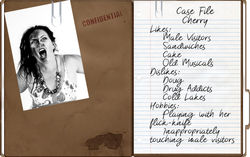 CONFIDENTIAL
Case File
Cherry
Likes:
Male Visitors
Sandwiches
Cake
Old Musicals
Dislikes:
Doug
Drug Addicts
Cold Lakes
Hobbies:
Playing with her
flick-knife
Inappropriately
touching male visitors